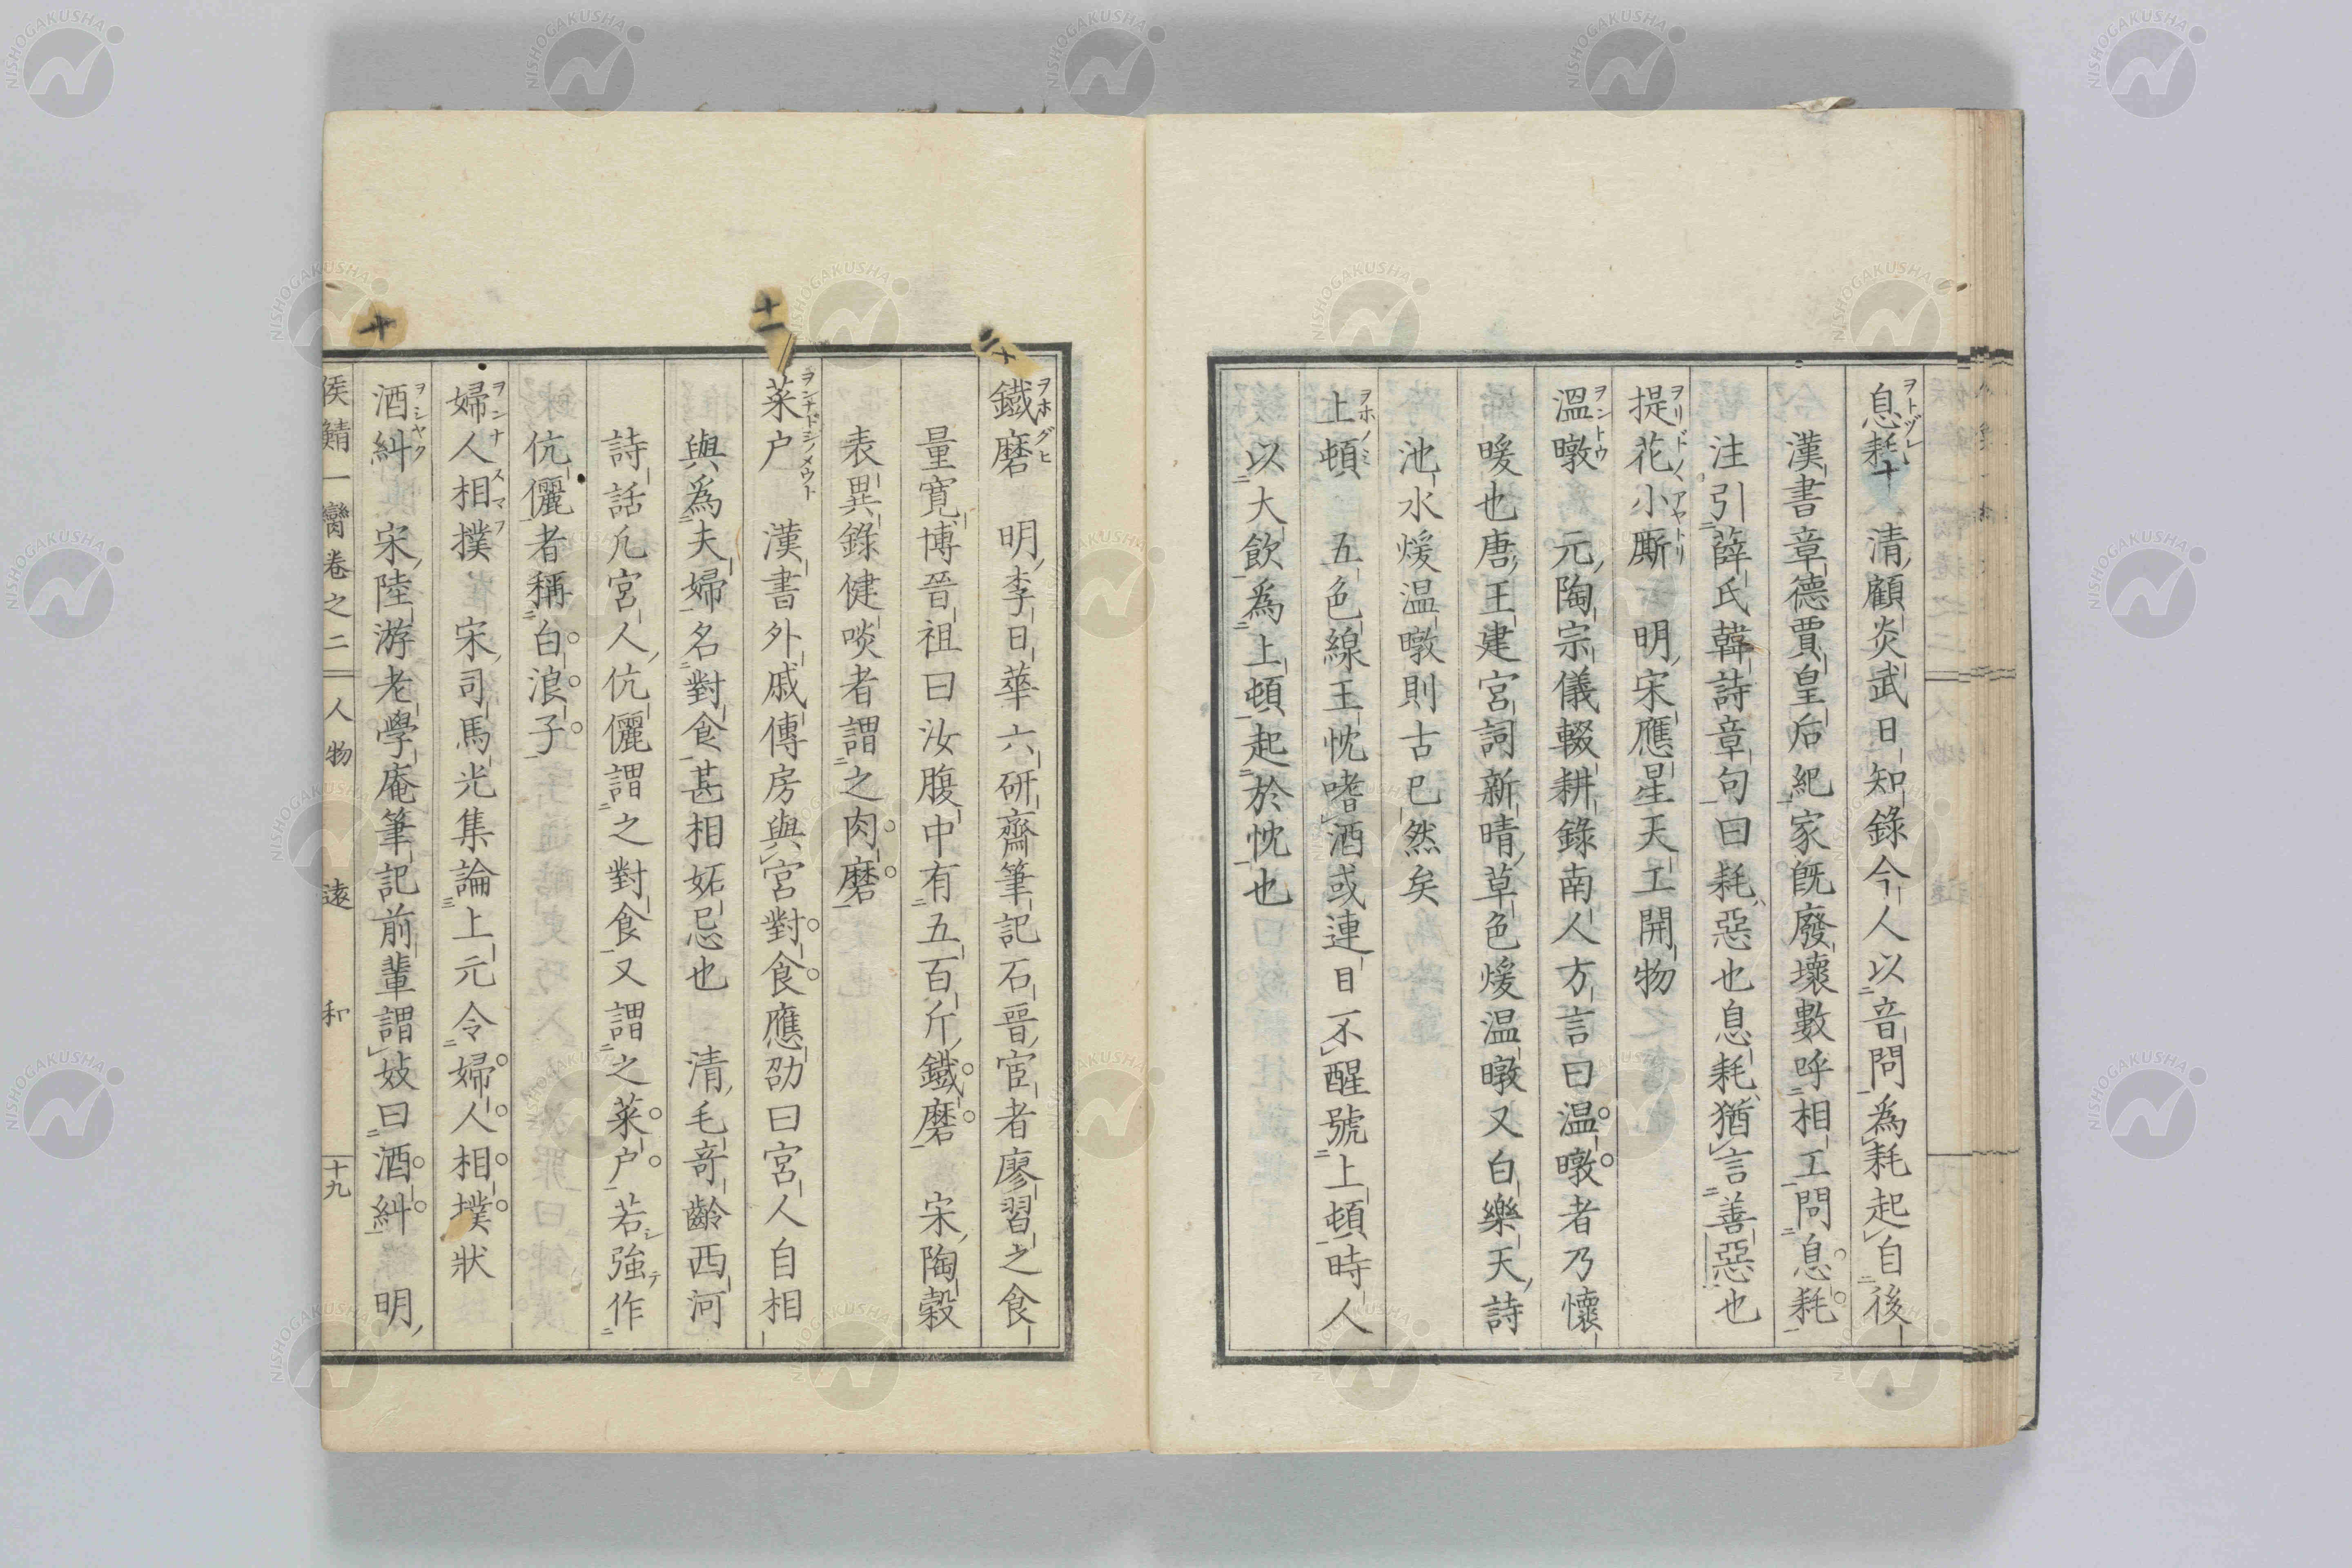 息耗　清顧炎武日知錄今人以音問為耗起自後
漢書章德賈皇后紀家旣廢壞數呼相工問息耗
注引薛氏韓詩章句曰耗惡也息耗猶言善惡也
提花小廝　明宋應星天工開物
溫暾　元陶宗儀輟耕錄南人方言曰温暾者乃懷
暖也唐王建宮詞新晴草色煖温暾又白樂天詩
池水煖温暾則古已然矣
上頓　五色線王忱嗜酒或連日不醒號上頓時人
以大飲為上頓起於忱也
鐵磨　明李日華六研齋筆記石晉宦者廖習之食
量寬博晉祖曰汝腹中有五百斤鐵磨　宋陶穀
表異錄健啖者謂之肉磨
菜户　漢書外戚傳房與宮對食應劭曰宮人自相
與為夫婦名對食甚相妬忌也　清毛奇齡西河
詩話凢宮人伉儷謂之對食又謂之菜户若強作
伉儷者稱白浪子
婦人相撲　宋司馬光集論上元令婦人相撲狀
酒糾　宋陸游老學庵筆記前輩謂妓曰酒糾　明
侯鯖一臠卷之二　人物　遠　和　十九
ヲトヅレ
ヲリドノヽアヤトリ
ヲントウ
ヲホノミ
ヲホグヒ
ヲンナドシノメウト
ヲンナスマヲ
ヲシヤク
十一
十
NISHOGAKUSHA